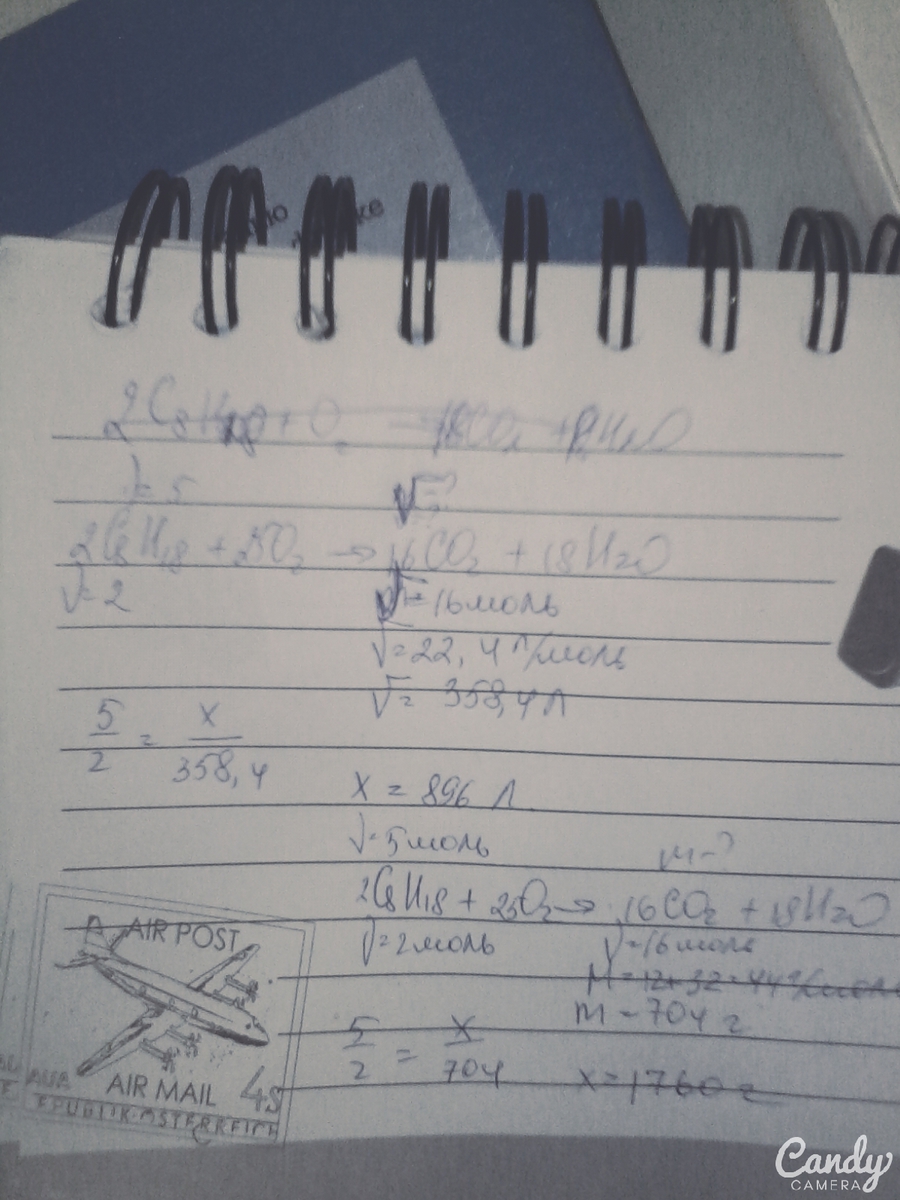 2C8H18 + O2 → 16CO2 + 18H2O
ν = 5 V = ?
2C8H18 + 25O2 → 16CO2 + 18H2O
ν = 2 ν = 16 моль
V = 22,4 л/моль
V = 358,4 л
5/2 = x/358,4
x = 896 л
ν = 5 моль m - ?
2C8H18 + 25O2 → 16CO2 + 18H2O
ν = 2 моль ν = 16 моль
M = 12 + 32 = 44 г/моль
m = 704 г
5/2 = x/704 x = 1760 г
AIR POST
AIR MAIL 4s
REPUBLIK·ÖSTERREICH
Candy
CAMERA